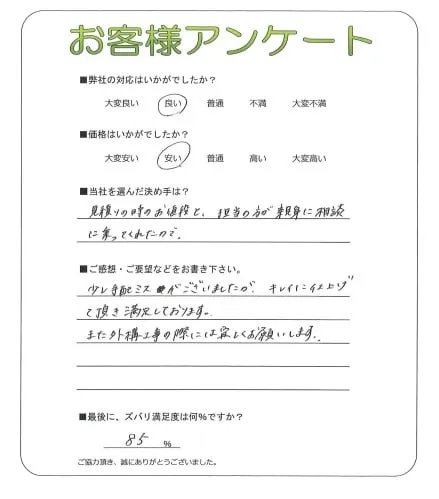 お客様アンケート
■弊社の対応はいかがでしたか？
大変良い 良い 普通 不満 大変不満
■価格はいかがでしたか？
大変安い 安い 普通 高い 大変高い
■当社を選んだ決め手は？
見積りの時のお値段と、担当の方が親身に相談
に乗ってくれたので。
■ご感想・ご要望などをお書き下さい。
少し手配ミスがございましたが、キレイに仕上げ
て頂き満足しております。
また外構工事の際には宜しくお願いします。
■最後に、ズバリ満足度は何％ですか？
85 ％
ご協力頂き、誠にありがとうございました。